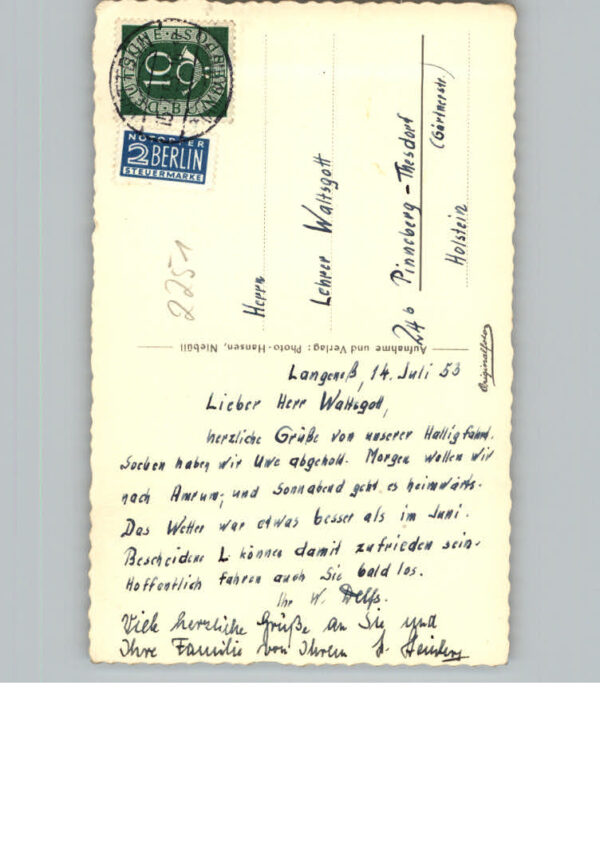 DEUTSCHE BUNDESPOST
10
NOTOPFER
2 BERLIN
STEUERMARKE
2251
Herrn
Lehrer Waltsgott
24b Pinneberg-Thesdorf
(Gärtnerstr.)
Holstein
Aufnahme und Verlag: Photo-Hansen, Niebüll
Originalfoto
Langeneß, 14. Juli 53
Lieber Herr Waltsgott,
herzliche Grüße von unserer Halligfahrt.
Soeben haben wir Uwe abgeholt. Morgen wollen wir
nach Amrum, und Sonnabend geht es heimwärts.
Das Wetter war etwas besser als im Juni.
Bescheidene L. können damit zufrieden sein.
Hoffentlich fahren auch Sie bald los.
Ihr W. Delfs.
Viele herzliche Grüße an Sie und
Ihre Familie von Ihrem